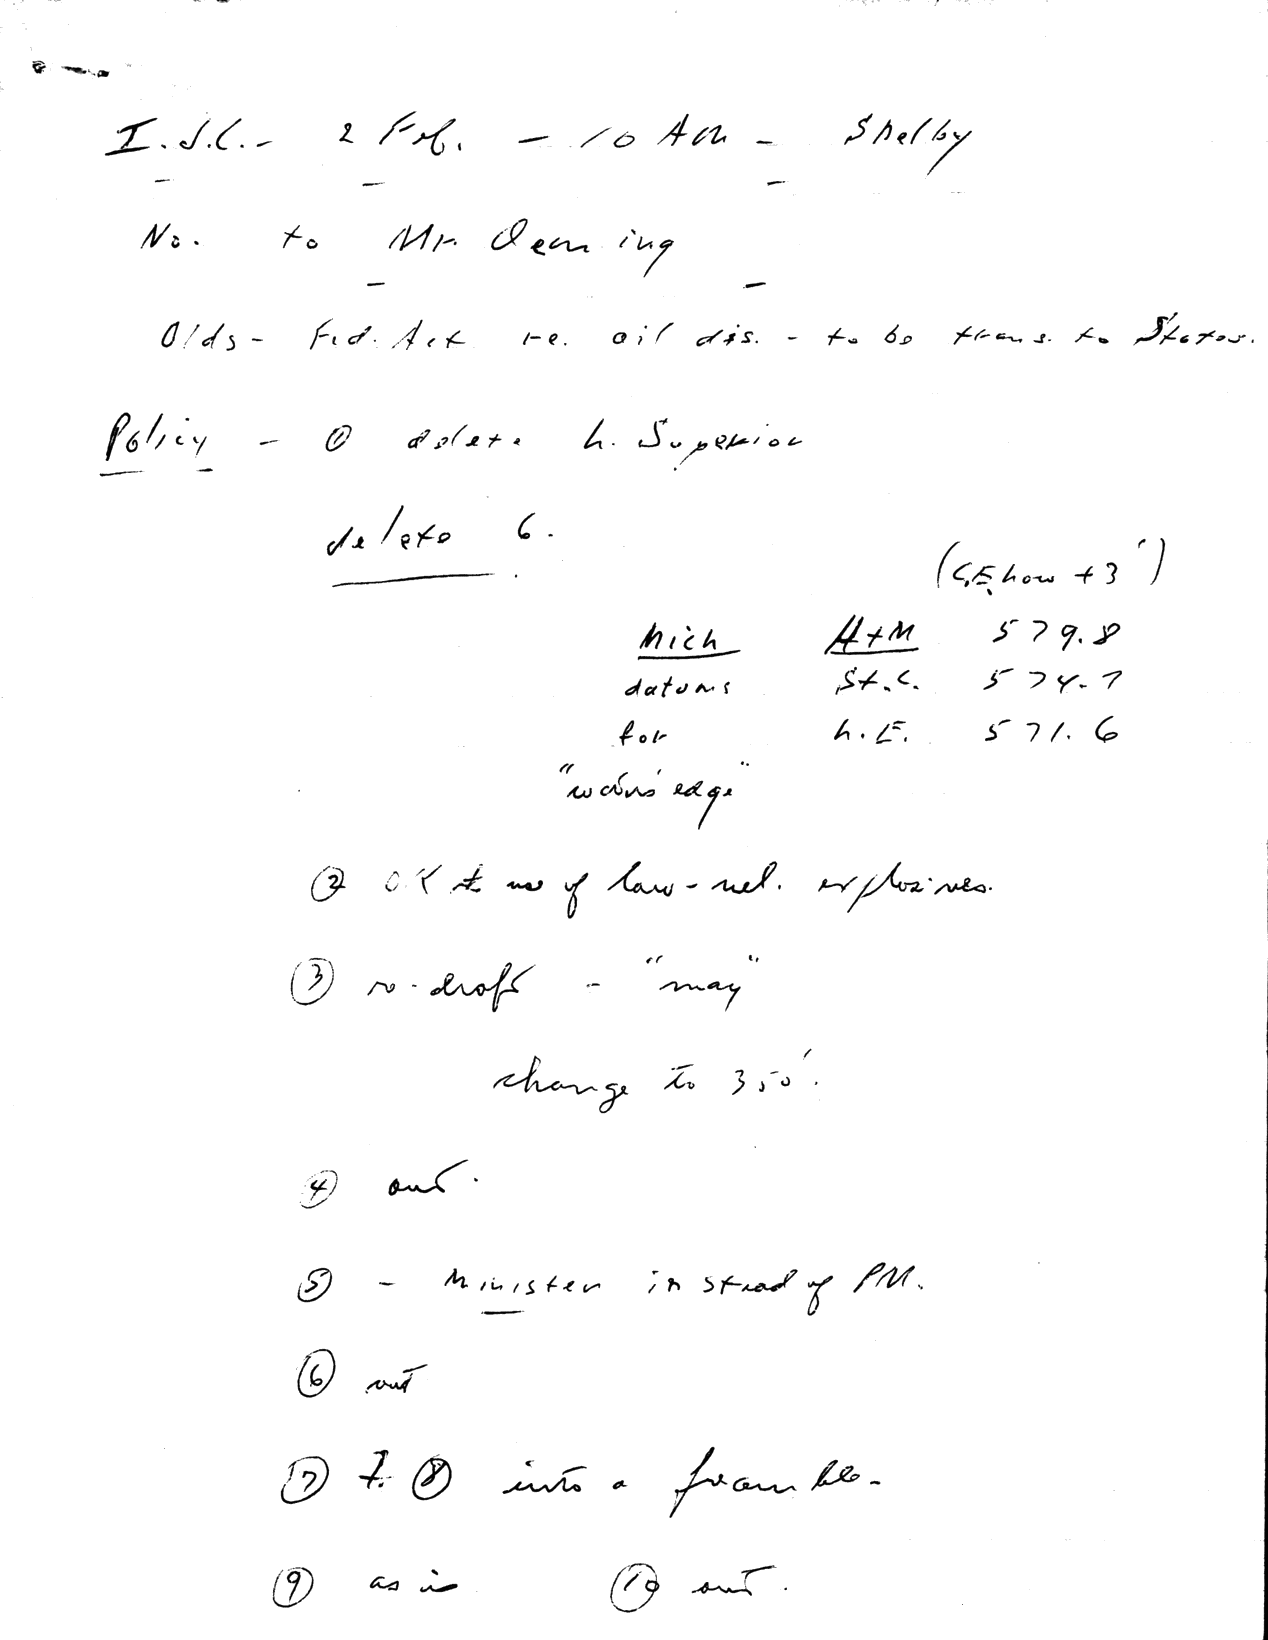 I.J.C. - 2 Feb. - 10 AM - Shelby
No. to Mr. Deming
Olds - Fed. Act re. oil dis. - to be trans. to States.
Policy - ① delete L. Superior
delete 6.
(C.E. how + 3')
Mich H+M 579.8
datums St.C. 574.7
for L.E. 571.6
"water's edge"
② O.K. use of low-vel. explosives.
③ re-draft - "may"
change to 350'.
④ out.
⑤ - Minister instead of PM.
⑥ out
⑦ + ⑧ into a preamble -
⑨ as is ⑩ out.